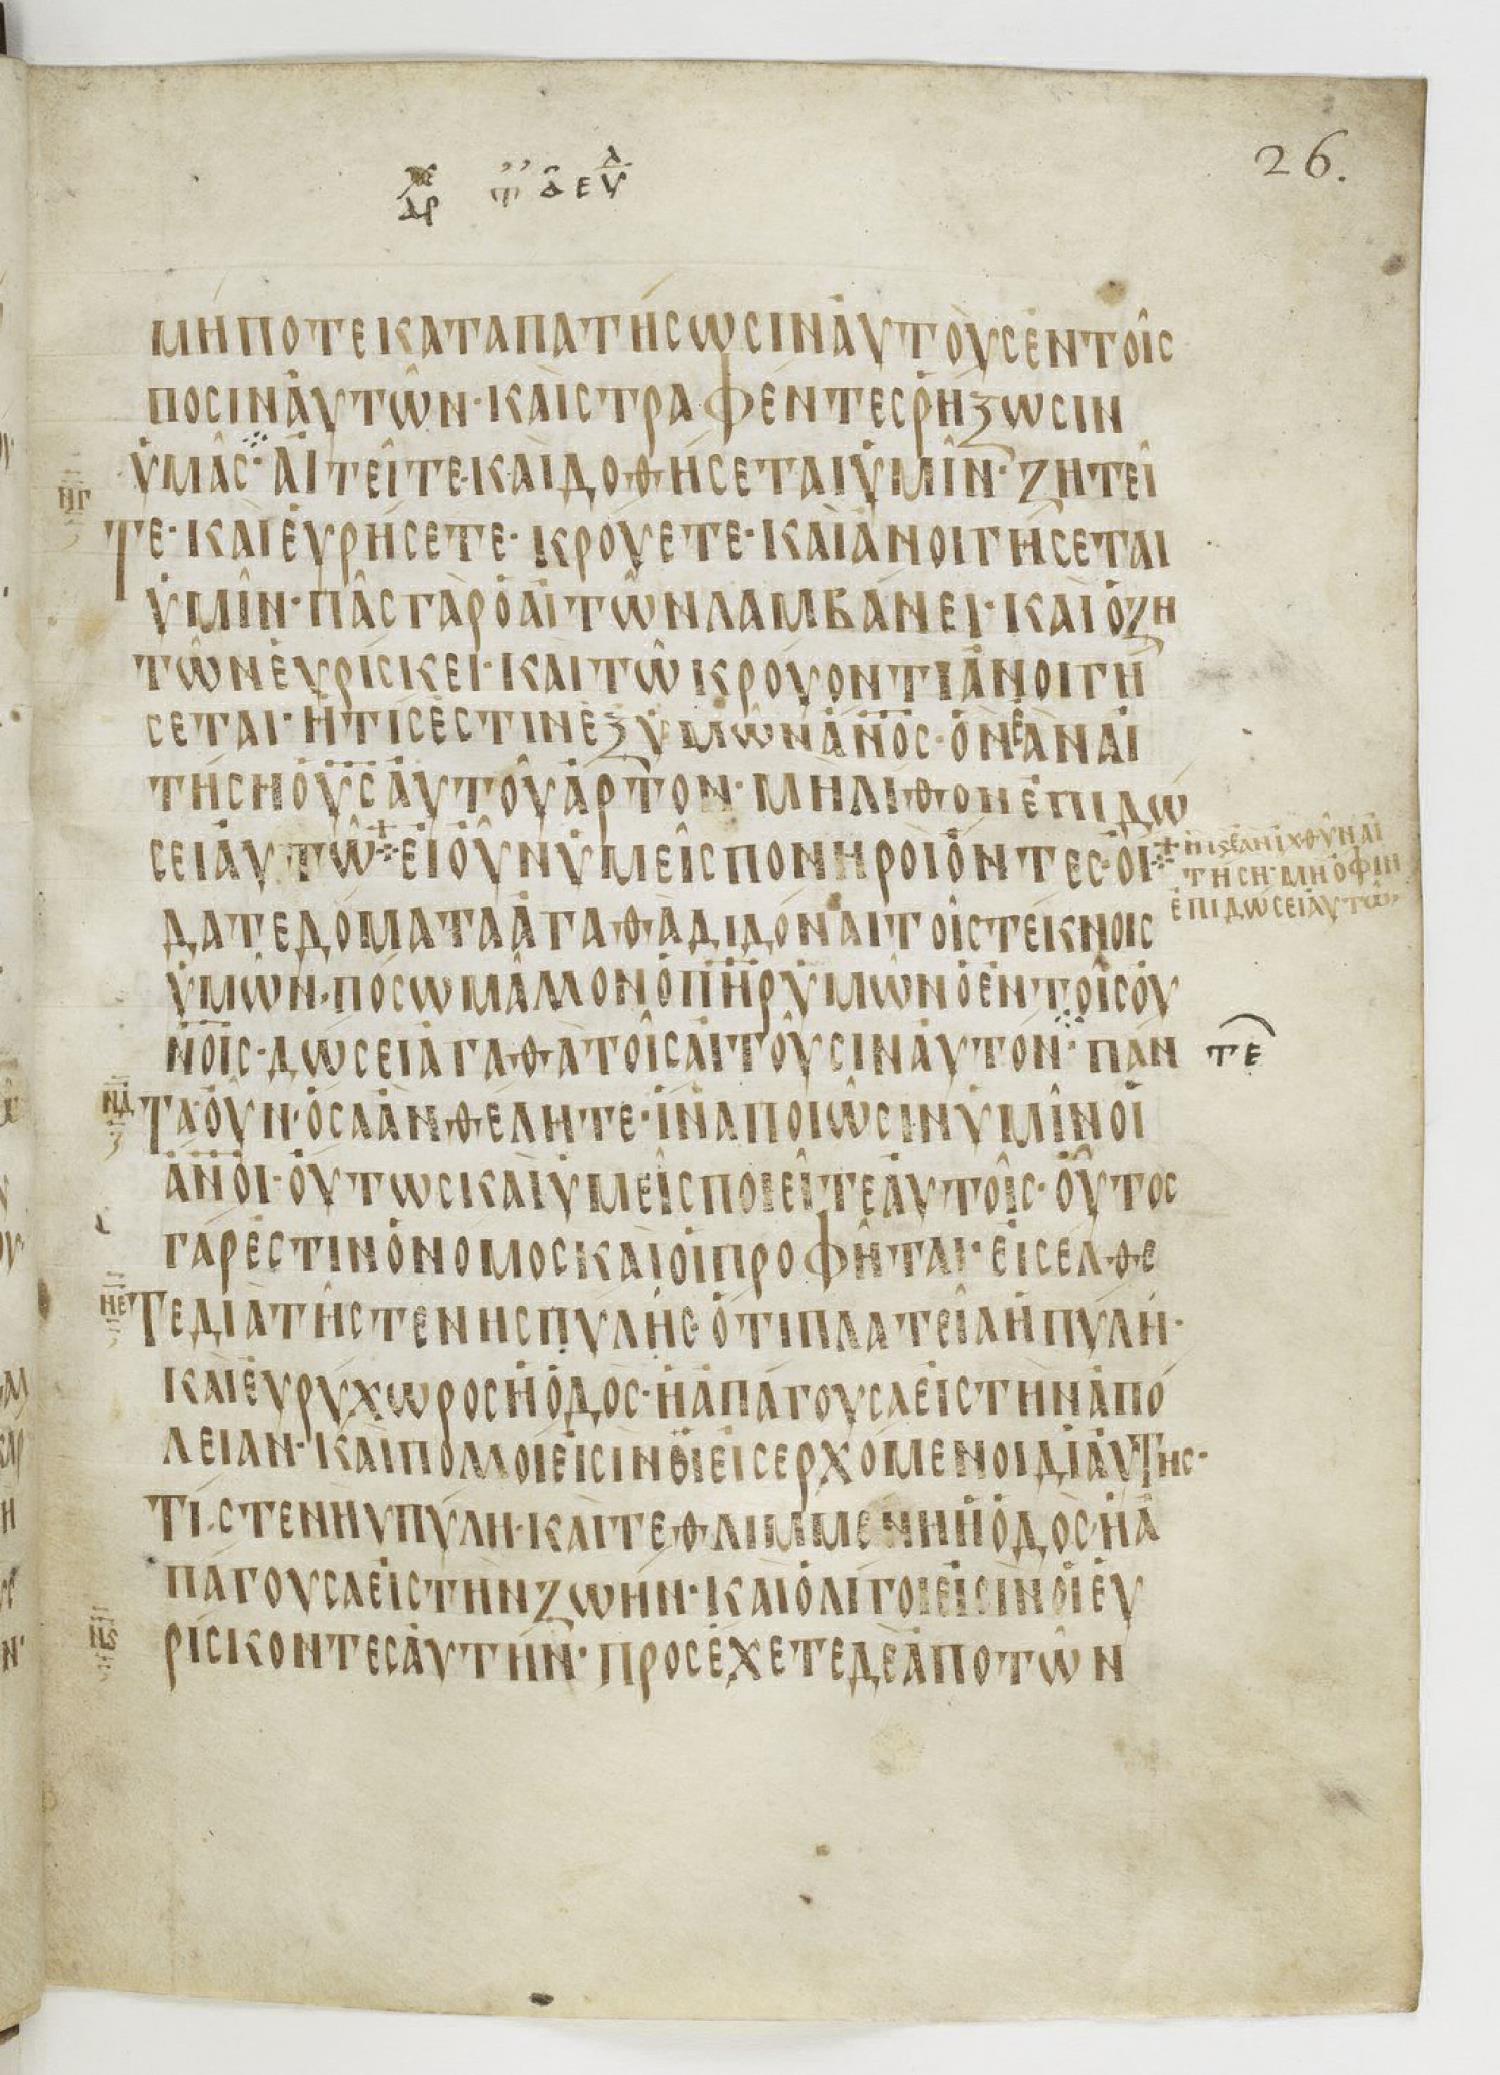 26.
ΜΗΠΟΤΕΚΑΤΑΠΑΤΗΣΩΣΙΝΑΥΤΟΥΣΕΝΤΟΙΣ
ΠΟΣΙΝΑΥΤΩΝ·ΚΑΙΣΤΡΑΦΕΝΤΕΣΡΗΞΩΣΙΝ
ΥΜΑΣ·ΑΙΤΕΙΤΕ·ΚΑΙΔΟΘΗΣΕΤΑΙΥΜΙΝ·ΖΗΤΕΙ
ΝΓ
ΤΕ·ΚΑΙΕΥΡΗΣΕΤΕ·ΚΡΟΥΕΤΕ·ΚΑΙΑΝΟΙΓΗΣΕΤΑΙ
ΥΜΙΝ·ΠΑΣΓΑΡΟΑΙΤΩΝΛΑΜΒΑΝΕΙ·ΚΑΙΟΖΗ
ΤΩΝΕΥΡΙΣΚΕΙ·ΚΑΙΤΩΚΡΟΥΟΝΤΙΑΝΟΙΓΗ
ΣΕΤΑΙ·ΗΤΙΣΕΣΤΙΝΕΞΥΜΩΝΑΝΟΣ·ΟΝΕΑΝΑΙ
ΤΗΣΗΟΥΣΑΥΤΟΥΑΡΤΟΝ·ΜΗΛΙΘΟΝΕΠΙΔΩ
ΣΕΙΑΥΤΩ·ΕΙΟΥΝΥΜΕΙΣΠΟΝΗΡΟΙΟΝΤΕΣ·ΟΙ
ΗΚΕΑΝΙΧΘΥΝΑΙ
ΤΗΣΗ·ΜΗΟΦΙΝ
ΕΠΙΔΩΣΕΙΑΥΤΩ
ΔΑΤΕΔΟΜΑΤΑΑΓΑΘΑΔΙΔΟΝΑΙΤΟΙΣΤΕΚΝΟΙΣ
ΥΜΩΝ·ΠΟΣΩΜΑΛΛΟΝΟΠΗΡΥΜΩΝΟΕΝΤΟΙΣΟΥ
ΝΟΙΣ·ΔΩΣΕΙΑΓΑΘΑΤΟΙΣΑΙΤΟΥΣΙΝΑΥΤΟΝ·ΠΑΝ
ΤΕ
ΝΔ
ΤΑΟΥΝ·ΟΣΑΑΝΘΕΛΗΤΕ·ΙΝΑΠΟΙΩΣΙΝΥΜΙΝΟΙ
ΑΝΟΙ·ΟΥΤΩΣΚΑΙΥΜΕΙΣΠΟΙΕΙΤΕΑΥΤΟΙΣ·ΟΥΤΟΣ
ΓΑΡΕΣΤΙΝΟΝΟΜΟΣΚΑΙΟΙΠΡΟΦΗΤΑΙ·ΕΙΣΕΛΘΕ
ΝΕ
ΤΕΔΙΑΤΗΣΤΕΝΗΣΠΥΛΗΣ·ΟΤΙΠΛΑΤΕΙΑΗΠΥΛΗ·
ΚΑΙΕΥΡΥΧΩΡΟΣΗΟΔΟΣ·ΗΑΠΑΓΟΥΣΑΕΙΣΤΗΝΑΠΟ
ΛΕΙΑΝ·ΚΑΙΠΟΛΛΟΙΕΙΣΙΝΟΙΕΙΣΕΡΧΟΜΕΝΟΙΔΙΑΥΤΗΣ·
ΤΙ·ΣΤΕΝΗΥΠΥΛΗ·ΚΑΙΤΕΘΛΙΜΜΕΝΗΗΟΔΟΣ·ΗΑ
ΠΑΓΟΥΣΑΕΙΣΤΗΝΖΩΗΝ·ΚΑΙΟΛΙΓΟΙΕΙΣΙΝΟΙΕΥ
ΝϚ
ΡΙΣΚΟΝΤΕΣΑΥΤΗΝ·ΠΡΟΣΕΧΕΤΕΔΕΑΠΟΤΩΝ